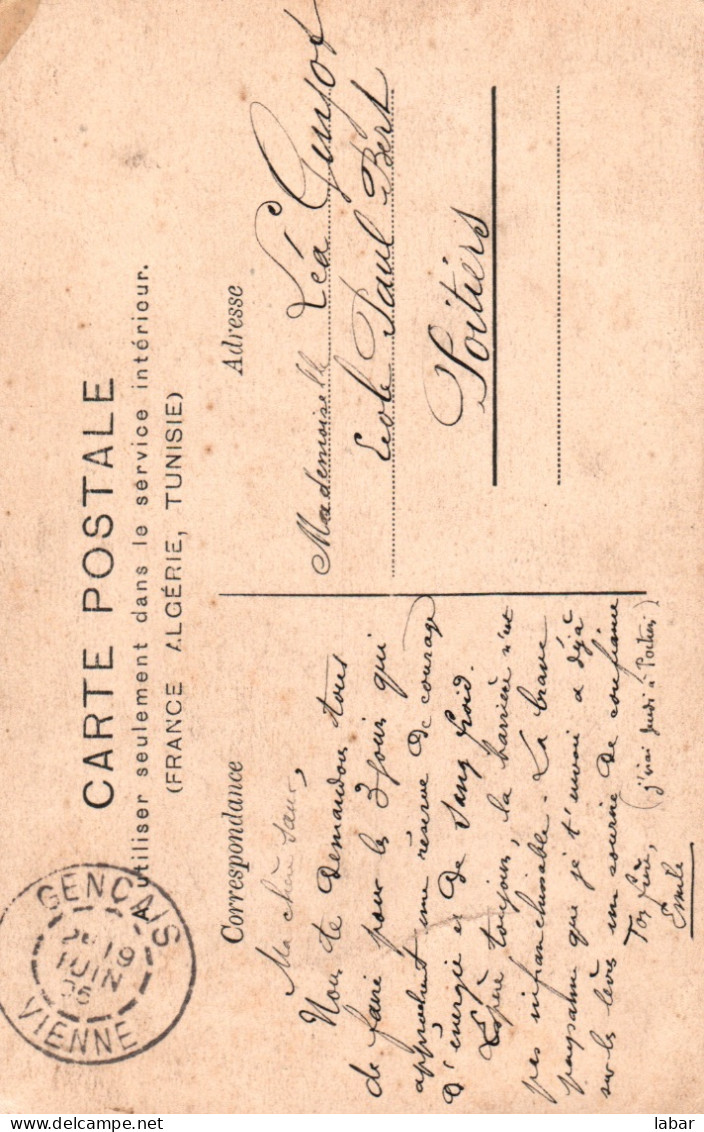 CARTE POSTALE
A utiliser seulement dans le service intérieur.
(FRANCE ALGÉRIE, TUNISIE)
GENÇAIS
19
JUIN
06
VIENNE
Correspondance
Ma chère sœur,
Nous te demandons tous
de faire pour les 3 jours qui
approchent une réserve de courage
d'énergie et de sang froid.
Espère toujours, la barrière n'est
pas infranchissable. La brave
paysanne que je t'envoie a déjà
sur les lèvres un sourire de confiance
Ton frère, (j'irai jeudi à Poitiers)
Emile
Adresse
Mademoiselle Léa Guyot
Ecole Paul Bert
Poitiers
delcampe.net
labar